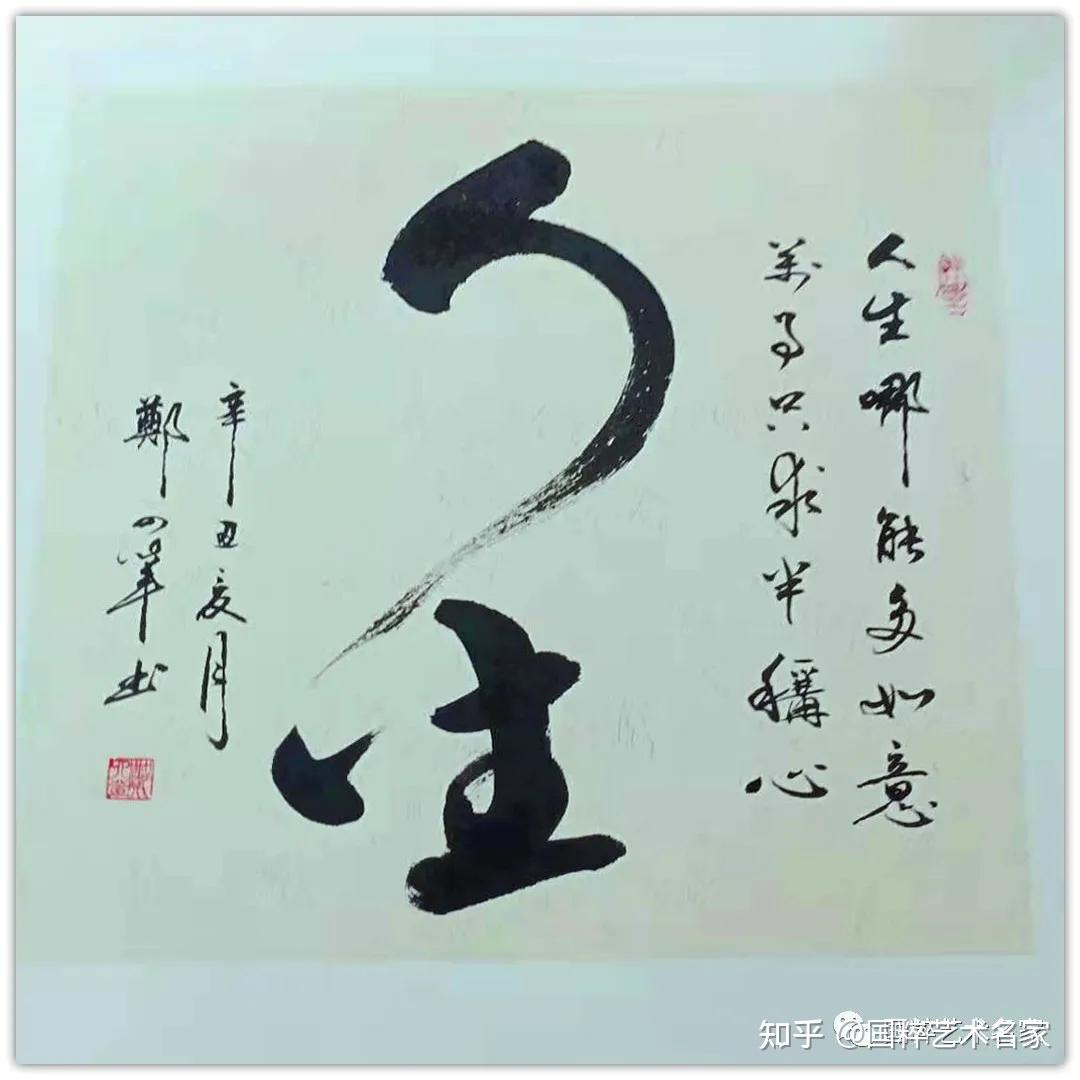 人生哪能多如意
萬事只求半稱心
辛丑亥月
鄭书
知乎 @国粹艺术名家